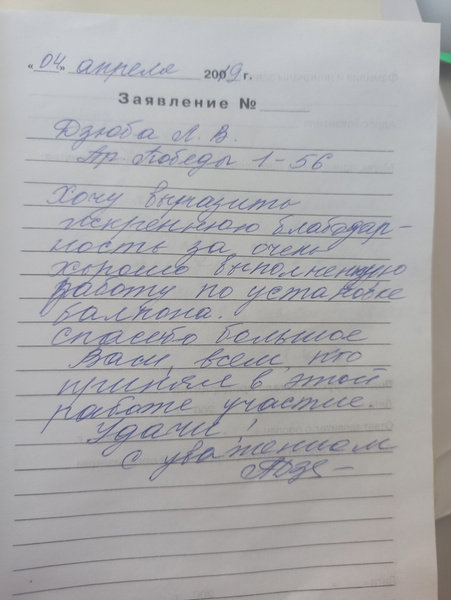 «04» апреля 2009 г.
Заявление №
Дзюба Л. В.
Пр. Победы 1-56
Хочу выразить
искреннюю благодар-
ность за очень
хорошо выполненную
работу по установке
балкона.
Спасибо большое
Вам, всем, кто
принял в этой
работе участие.
Удачи!
С уважением